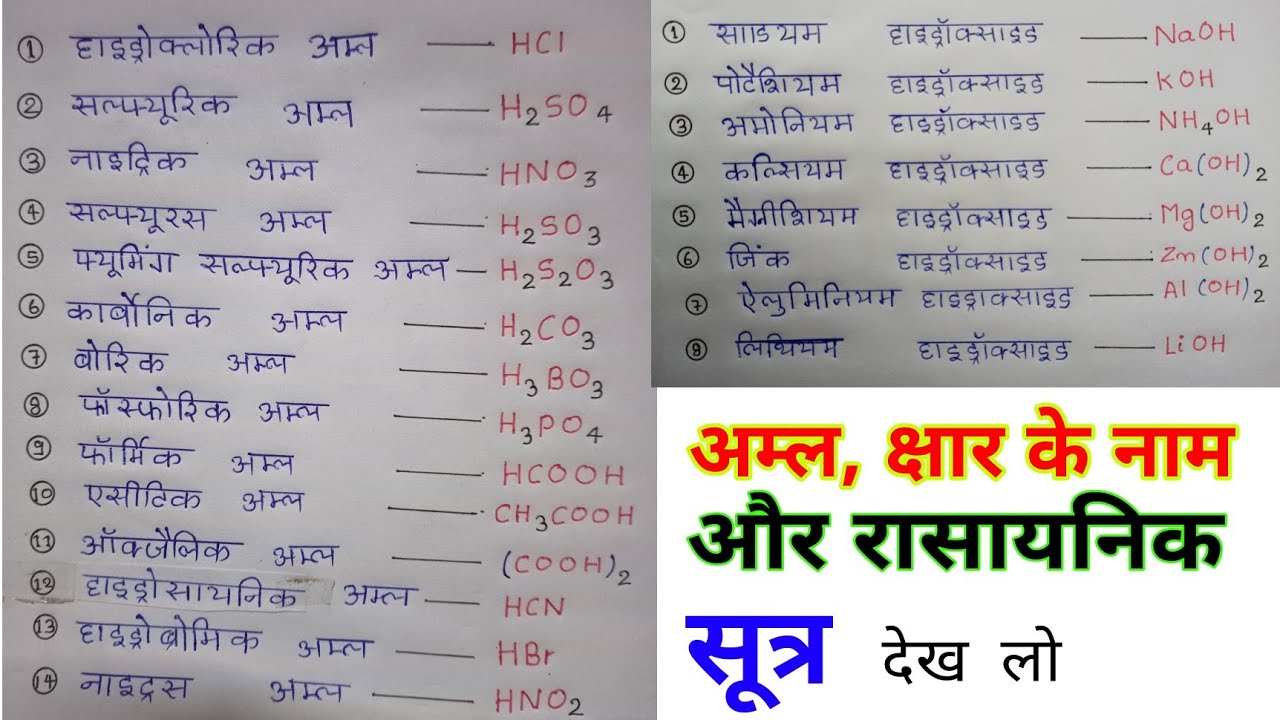 ① हाइड्रोक्लोरिक अम्ल — HCl
② सल्फ्यूरिक अम्ल — H₂SO₄
③ नाइट्रिक अम्ल — HNO₃
④ सल्फ्यूरस अम्ल — H₂SO₃
⑤ फ्यूमिंग सल्फ्यूरिक अम्ल — H₂S₂O₃
⑥ कार्बोनिक अम्ल — H₂CO₃
⑦ बोरिक अम्ल — H₃BO₃
⑧ फॉस्फोरिक अम्ल — H₃PO₄
⑨ फॉर्मिक अम्ल — HCOOH
⑩ एसीटिक अम्ल — CH₃COOH
⑪ ऑक्जैलिक अम्ल — (COOH)₂
⑫ हाइड्रोसायनिक अम्ल — HCN
⑬ हाइड्रोब्रोमिक अम्ल — HBr
⑭ नाइट्रस अम्ल — HNO₂
① साडियम हाइड्रॉक्साइड — NaOH
② पोटैशियम हाइड्रॉक्साइड — KOH
③ अमोनियम हाइड्रॉक्साइड — NH₄OH
④ कल्सियम हाइड्रॉक्साइड — Ca(OH)₂
⑤ मैग्नीशियम हाइड्रॉक्साइड — Mg(OH)₂
⑥ जिंक हाइड्रॉक्साइड — Zn(OH)₂
⑦ ऐलुमिनियम हाइड्राक्साइड — Al(OH)₂
⑧ लिथियम हाइड्रॉक्साइड — LiOH
अम्ल, क्षार के नाम
और रासायनिक
सूत्र देख लो